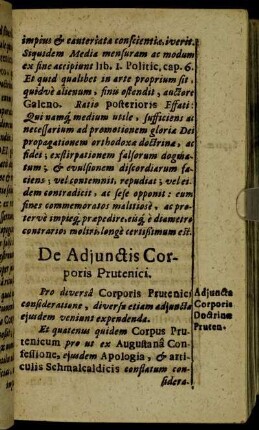 impius & cauteriata conscientia, iverit.
Siquidem Media mensuram ac modum
ex fine accipiunt lib. 1. Politic. cap. 6.
Et quid qualibet in arte proprium sit,
quidvè alienum, finis ostendit, auctore
Galeno. Ratio posterioris Effati:
Qui namq; medium utile, sufficiens ac
necessarium ad promotionem gloriæ Dei
propagationem orthodoxa doctrina, ac
fidei; exstirpationem falsorum dogma-
tum; & evulsionem discordiarum fa-
ciens; vel contemnit, repudiat; vel ei-
dem contradicit, ac sese opponit: eum
fines commemoratos malitiosè, ac pro-
tervè impieq; præpedire, eiuq; è diametro
contrarios moliri, longè certissimum est.
De Adjunctis Cor-
poris Prutenici.
Pro diversâ Corporis Prutenici
consideratione, diversa etiam adjuncta
ejusdem veniunt expendenda.
Adjuncta
Corporis
Doctrinæ
Pruten.
Et quatenus quidem Corpus Pru-
tenicum pro ut ex Augustanâ Con-
fessione, ejusdem Apologia, & arti-
culis Schmalcaldicis conflatum con-
sidera-